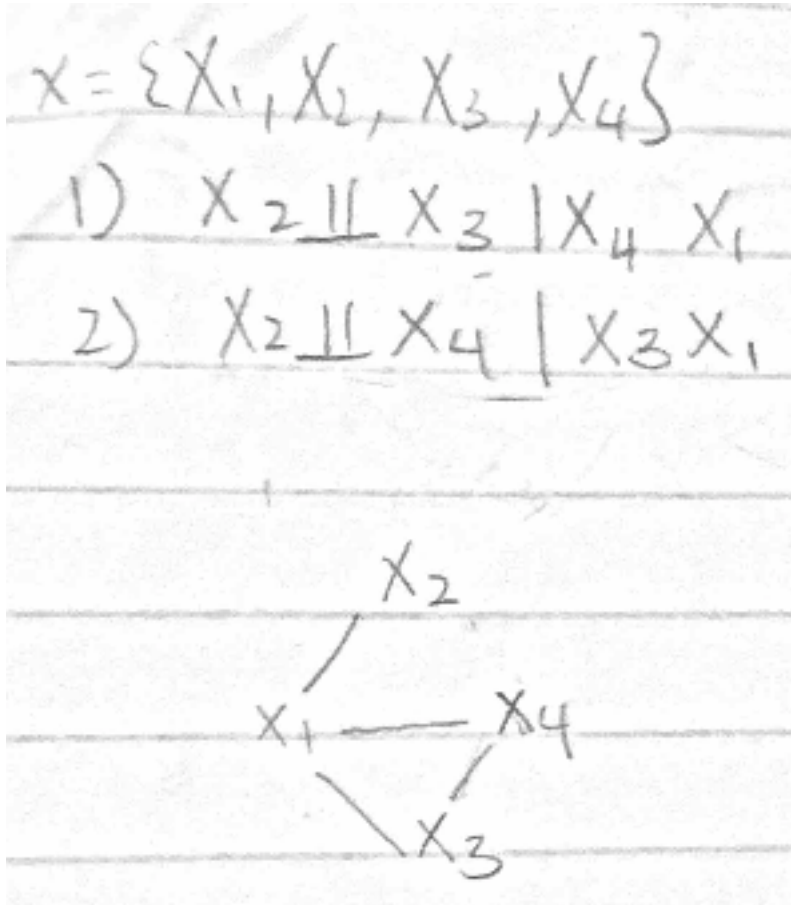 x = {X₁, X₂, X₃, X₄}
1) X₂ ⫫ X₃ | X₄ X₁
2) X₂ ⫫ X₄ | X₃ X₁
X₂
X₁ X₄
X₃